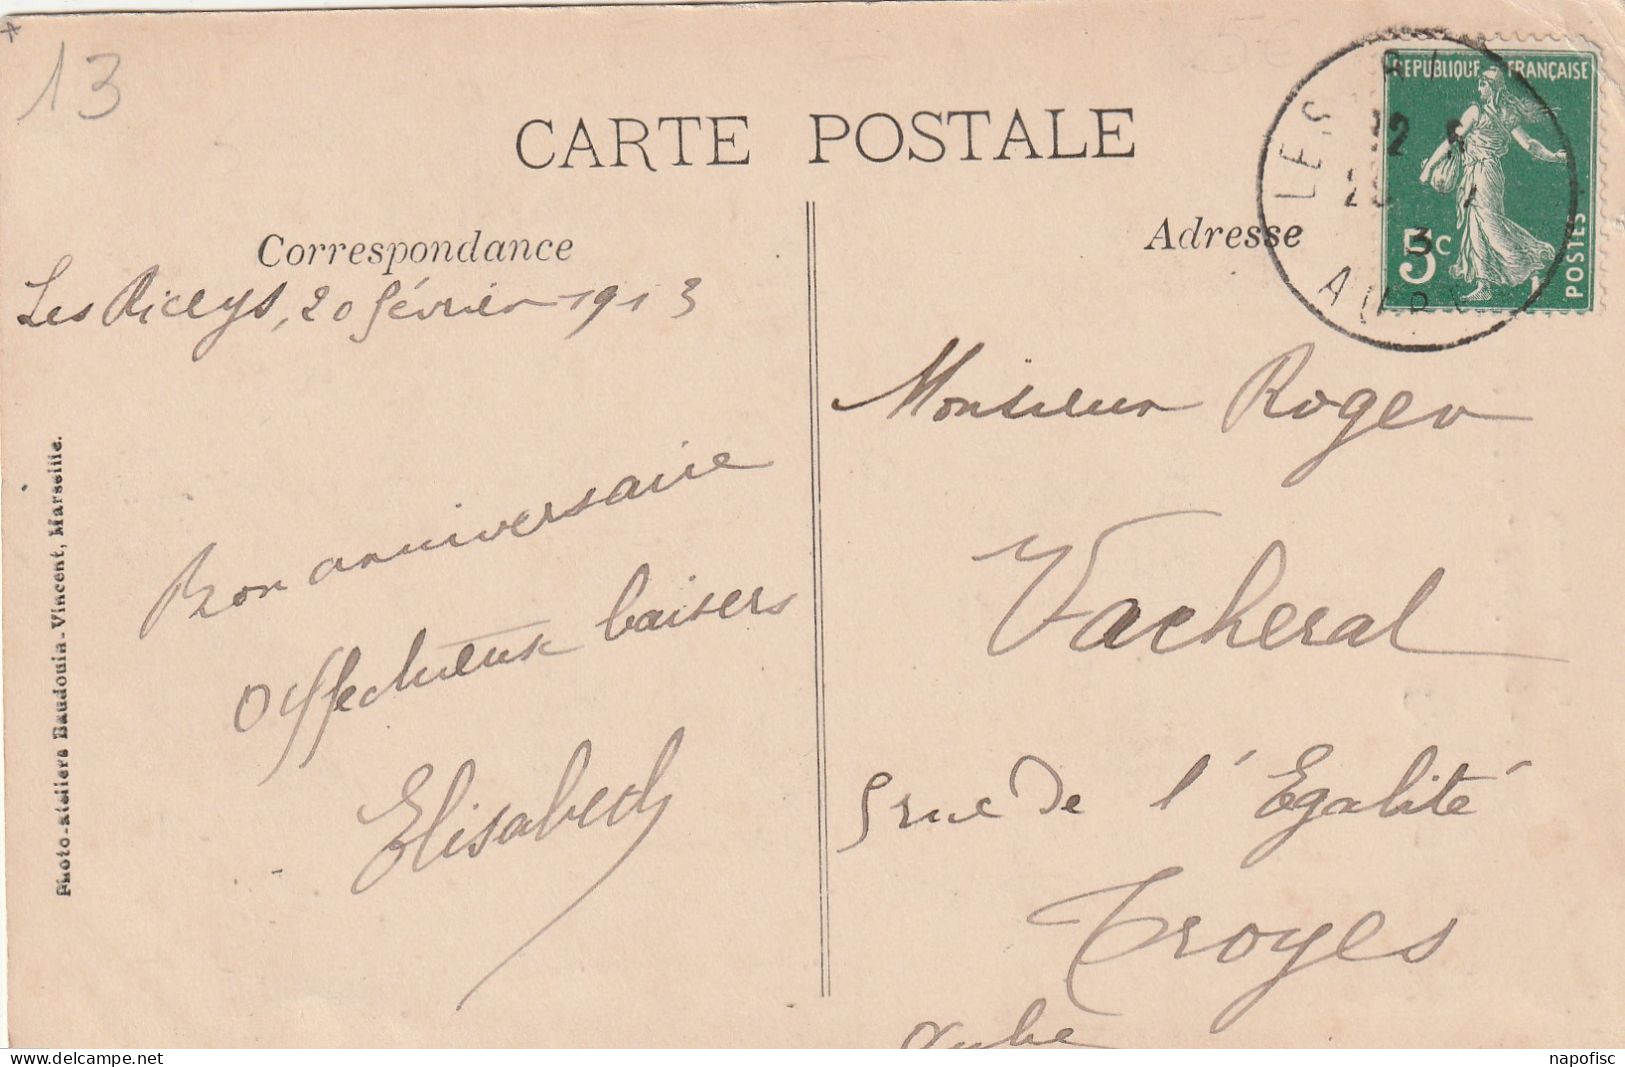 13
5€
CARTE POSTALE
Correspondance
Adresse
REPUBLIQUE FRANÇAISE
5c
POSTES
LES RI
12
20
3
AUBE
Les Riceys, 20 février 1913
Bon anniversaire
Affectueux baisers
Elisabeth
Photo-ateliers Baudouin-Vincent, Marseille.
Monsieur Roger
Vacherat
5 rue de l'Egalité
Troyes
Aube
napofisc